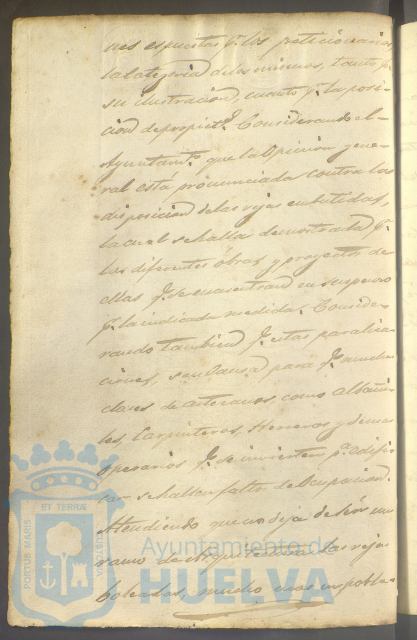 nes espuestas pr. los peticionarios
la categoria de los mismos, tanto pr.
su ilustracion, cuanto pr. la posi-
cion de propiets. Considerando el
Ayuntamto. que la Opinion gene-
ral está pronunciada contra la
disposicion de las rejas embutidas,
la cual se halla demostrada pr.
las diferentes obras y proyectos de
ellas qe. se encuentran en suspenso
pr. la indicada medida. Conside-
rando tambien qe. estas paraliza-
ciones, son causa para qe. muchas
clases de artesanos como Albañi-
les, Carpinteros, Herreros y demas
operarios qe. se invierten pa. edifi-
car se hallan faltos de Ocupacion.
Atendiendo que no deja de ser un
ramo de Arquitectura las rejas
boleadas, mucho mas en pobla-
PORTUS MARIS
ET TERRÆ
CUSTODIA
Ayuntamiento de
HUELVA